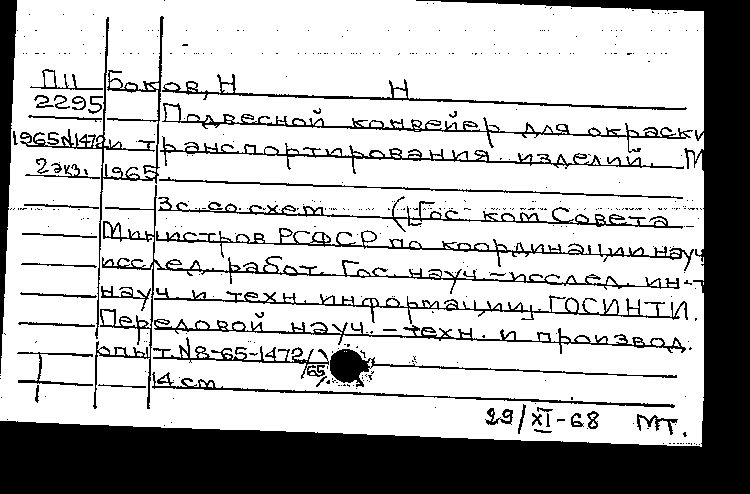 П11 Боков, Н Н
2295 Подвесной конвейер для окраски
1965 N1472 и транспортирования изделий. М
2 экз. 1965.
3с. со схем. ([Гос ком Совета
Министров РСФСР по координации науч
исслед. работ. Гос. науч-исслед. ин-т
науч. и техн. информации, ГОСИНТИ.
Передовой науч.-техн. и производ.
опыт. N8-65-1472/65).
4 см
29/XI-68 МТ.